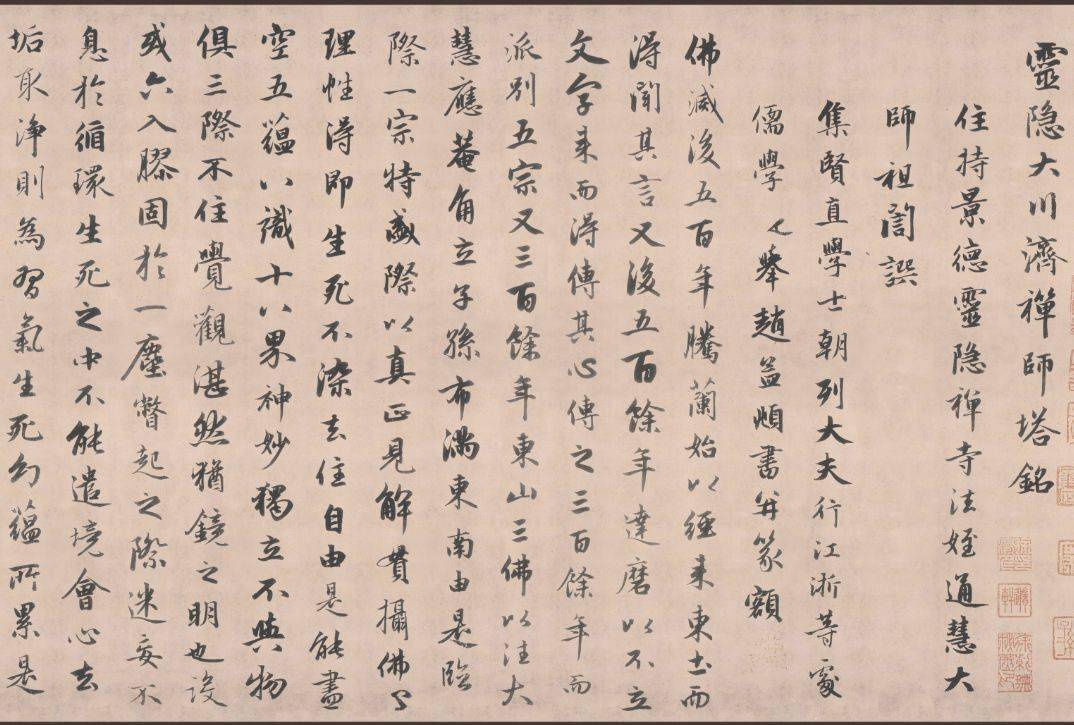 靈隐大川濟禪師塔銘
住持景德靈隐禅寺法姪通慧大
師祖誾譔
集賢直學士朝列大夫行江浙等處
儒學舉趙孟頫書并篆額
佛滅後五百年騰蘭始以經来東土而
淂聞其言又後五百餘年達磨以不立
文字来而淂傳其心傳之三百餘年而
派别五宗又三百餘年東山三佛以法大
慧應菴角立子孫布滿東南由是臨
際一宗特盛際以真正見解貫攝佛
理性淂即生死不染去住自由是能盡
空五蕴八識十八界神妙獨立不與物
俱三際不住覺觀湛然猶鏡之明也設
或六入膠固於一塵瞥起之際迷妄不
息於循環生死之中不能遣境會心去
垢取淨則為習氣生死幻蕴所累是